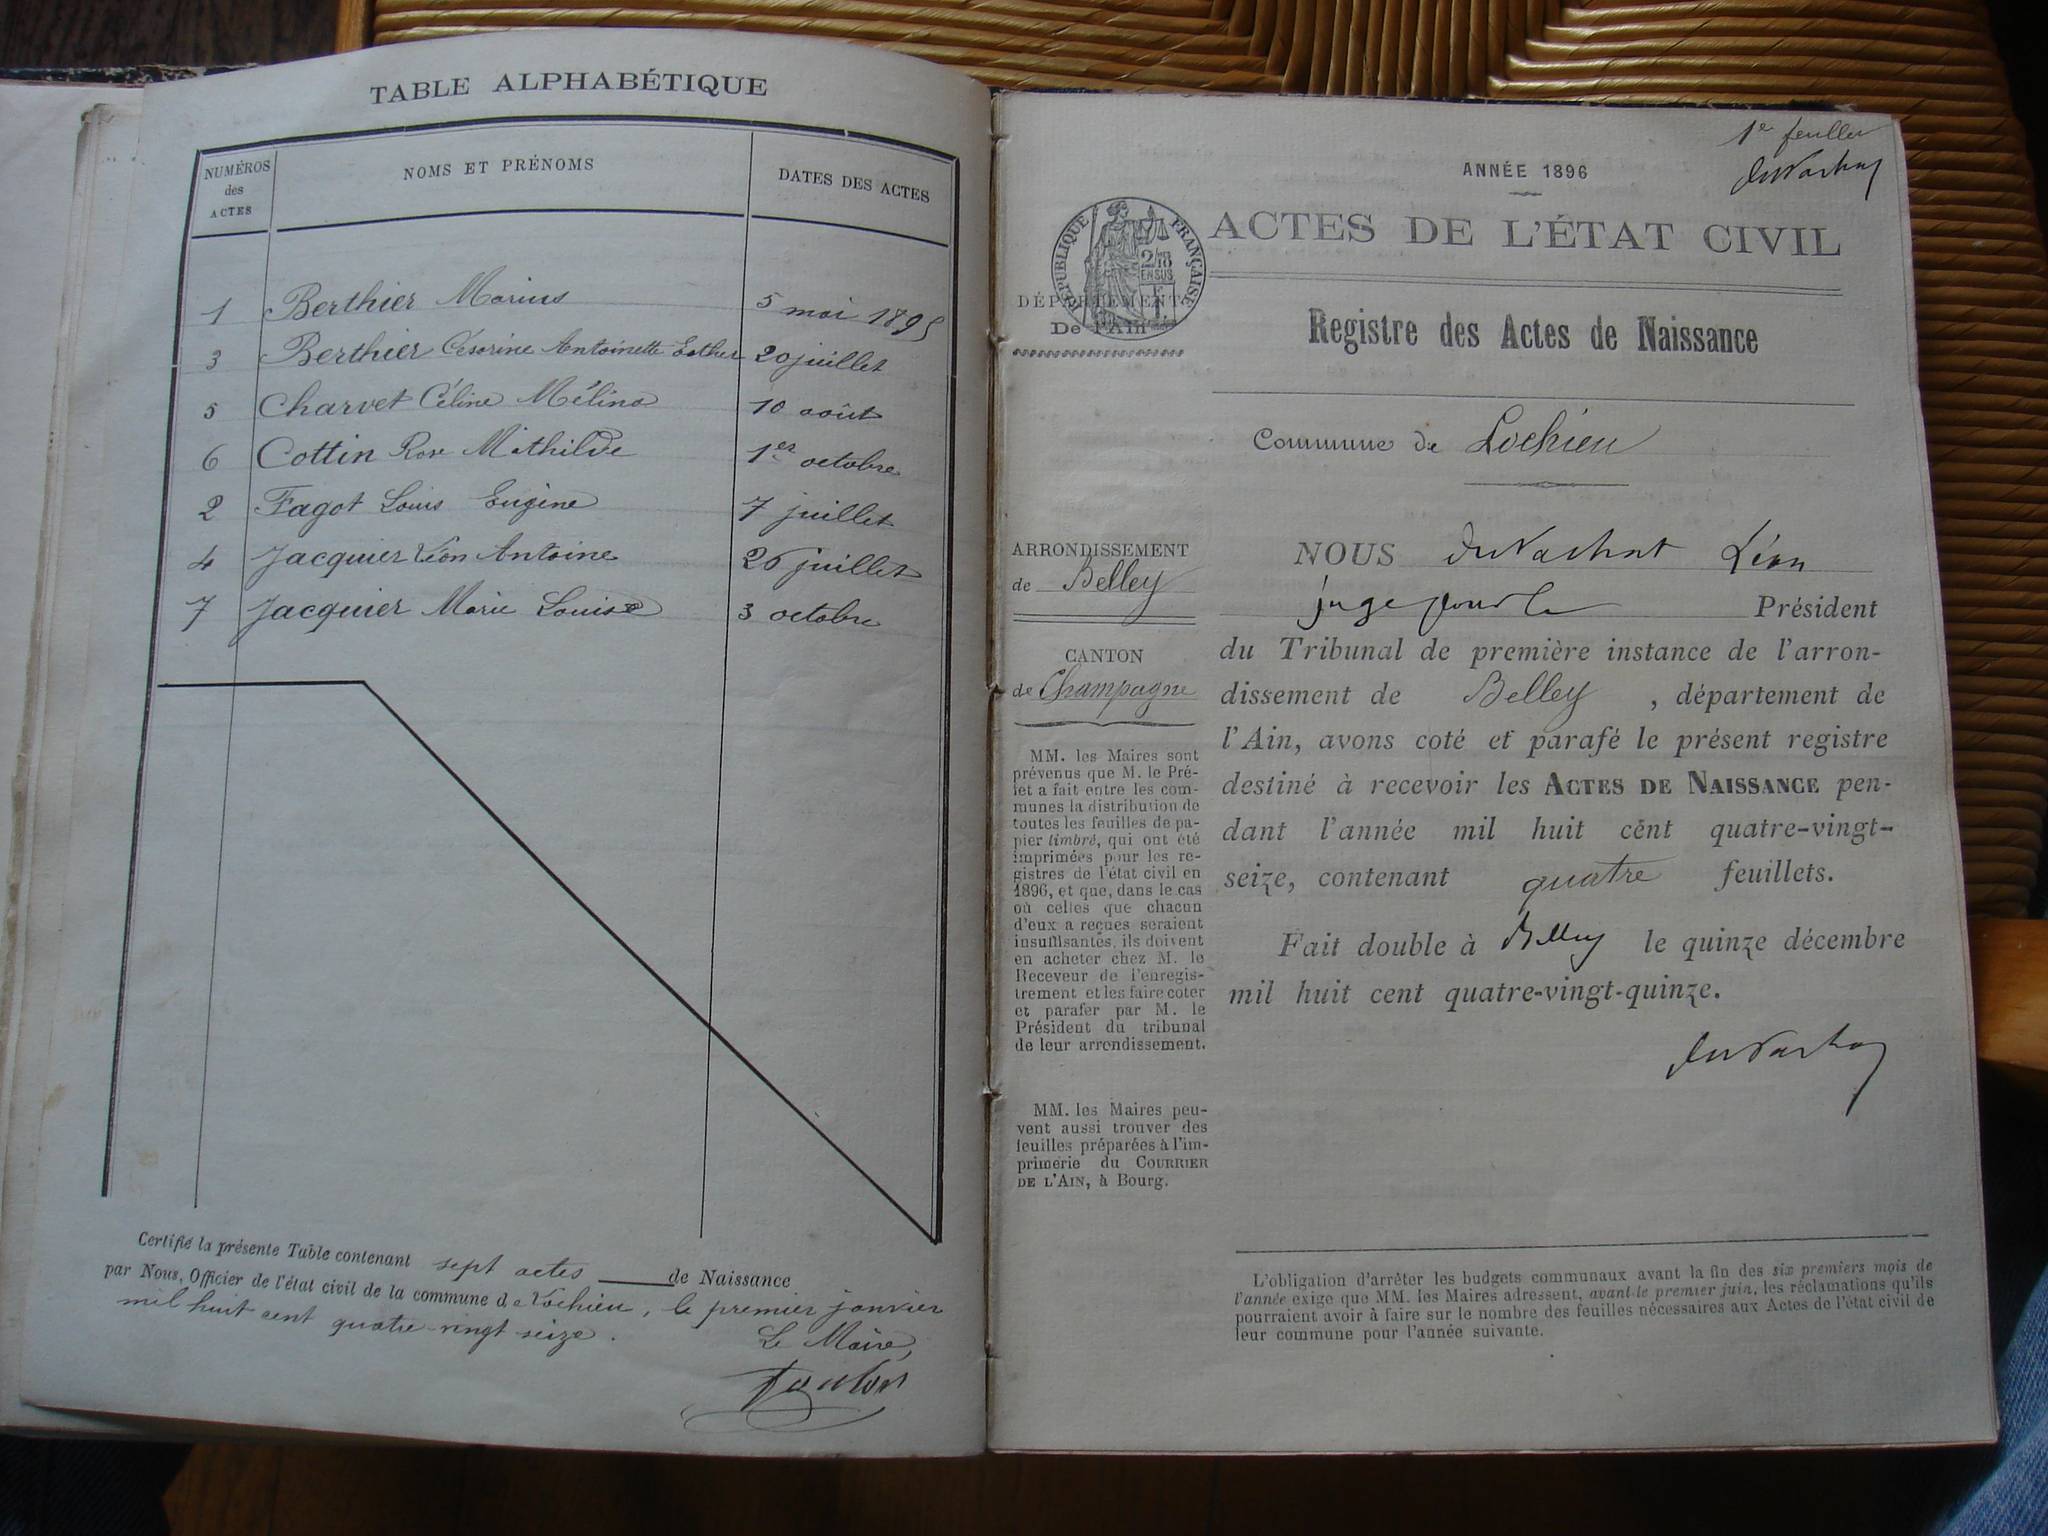 TABLE ALPHABÉTIQUE
NUMÉROS des ACTES
NOMS ET PRÉNOMS
DATES DES ACTES
1 Berthier Marius 5 mai 1895
3 Berthier Césarine Antoinette Esther 20 juillet
5 Charvet Céline Mélina 10 août
6 Cottin Rose Mathilde 1er octobre
2 Fagot Louis Eugène 7 juillet
4 Jacquier Léon Antoine 26 juillet
7 Jacquier Marie Louise 3 octobre
Certifié la présente Table contenant sept actes de Naissance
par Nous, Officier de l'état civil de la commune de Lochieu, le premier janvier
mil huit cent quatre-vingt seize.
Le Maire,
1er feuillet
ANNÉE 1896
ACTES DE L'ÉTAT CIVIL
RÉPUBLIQUE FRANÇAISE
2/10 EN SUS
DÉPARTEMENT
De l'Ain
Registre des Actes de Naissance
Commune de Lochieu
ARRONDISSEMENT
de Belley
CANTON
de Champagne
MM. les Maires sont
prévenus que M. le Pré-
fet a fait entre les com-
munes la distribution de
toutes les feuilles de pa-
pier timbré, qui ont été
imprimées pour les re-
gistres de l'état civil en
1896, et que, dans le cas
où celles que chacun
d'eux a reçues seraient
insuffisantes, ils doivent
en acheter chez M. le
Receveur de l'enregis-
trement et les faire coter
et parafer par M. le
Président du tribunal
de leur arrondissement.
MM. les Maires peu-
vent aussi trouver des
feuilles préparées à l'im-
primerie du COURRIER
DE L'AIN, à Bourg.
NOUS Léon
juge pour le Président
du Tribunal de première instance de l'arron-
dissement de Belley, département de
l'Ain, avons coté et parafé le présent registre
destiné à recevoir les ACTES DE NAISSANCE pen-
dant l'année mil huit cent quatre-vingt-
seize, contenant quatre feuillets.
Fait double à Belley le quinze décembre
mil huit cent quatre-vingt-quinze.
L'obligation d'arrêter les budgets communaux avant la fin des six premiers mois de
l'année exige que MM. les Maires adressent, avant le premier juin, les réclamations qu'ils
pourraient avoir à faire sur le nombre des feuilles nécessaires aux Actes de l'état civil de
leur commune pour l'année suivante.